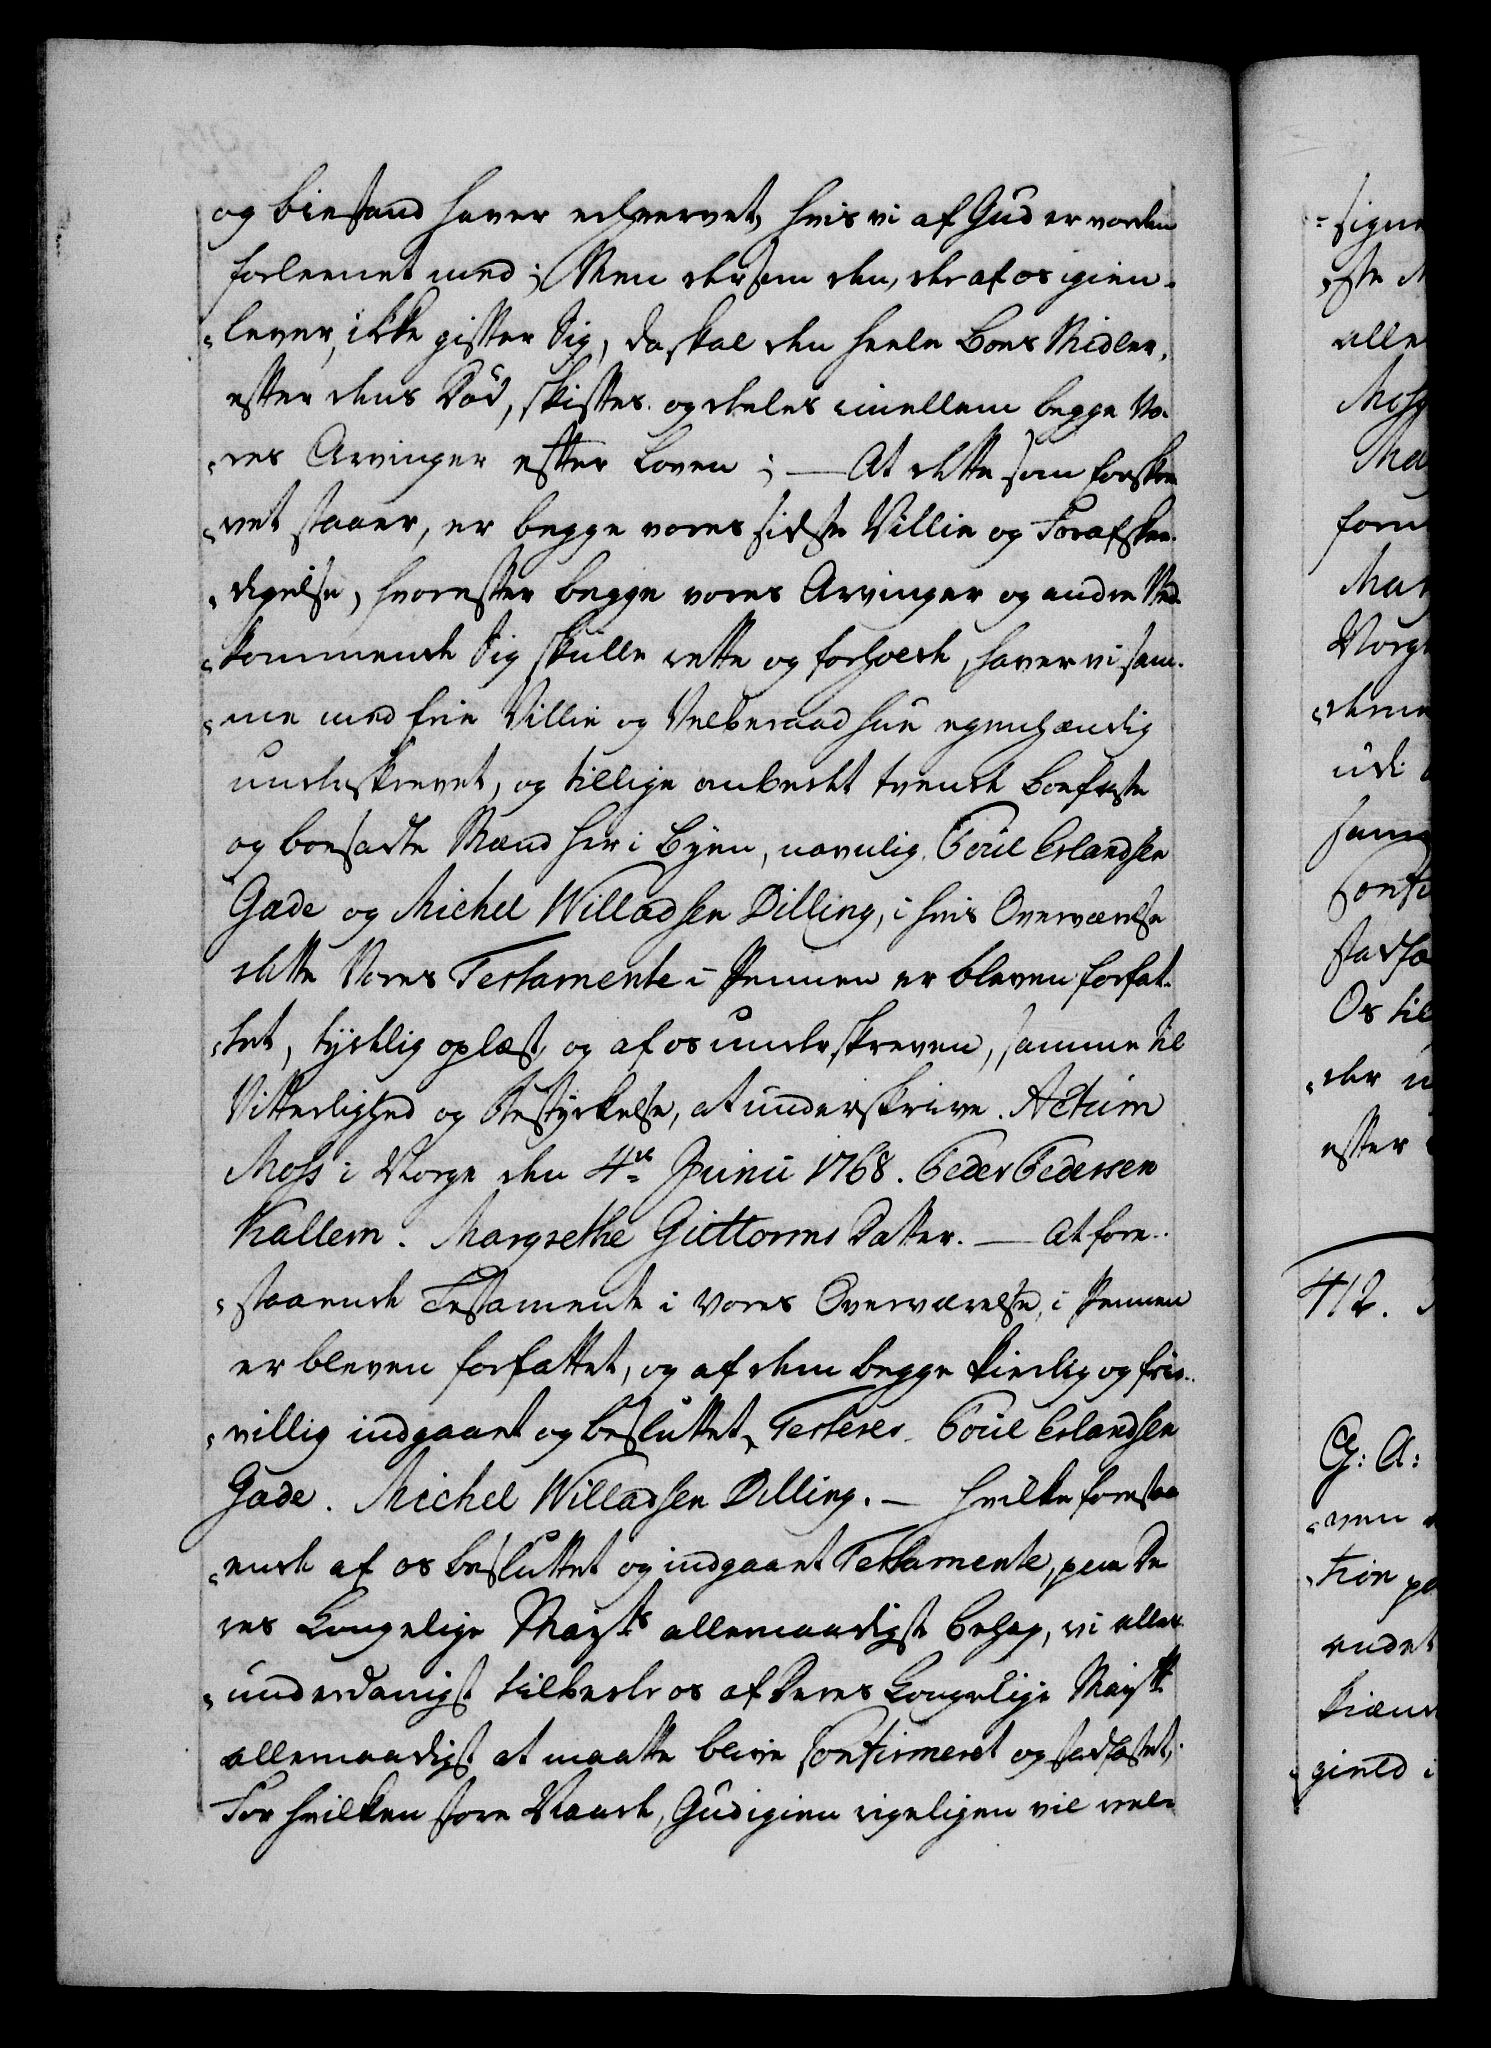 og biestand haver erhvervet, hvis vi af Gud er vorden
forleenet med; Men dersom den, der af os igien-
lever, ikke gifter Sig, da skal den heele Boes Midler,
efter dens Død, skiftes og deeles imellem begge Vo-
res Arvinger efter Loven; — At dette som forskre
vet staaer, er begge vores sidste Villie og Foraf Skee-
digelse, hvorefter begge vores Arvinger og andre Ved-
kommende Sig skulle rette og forholde, haver vi sam-
me med frie Villie og Velberaad hue egenhændig
underskrevet, og tillige ombedet tvende Boefaste
og boesadte Mænd her i Byen, navnlig Poul Erlandsen
Gade og Michel Willadsen Dilling, i hvis Overværelse
dette Vores Testamente i Pennen er bleven forfat-
tet, tydelig oplæst, og af os underskreven, samme til
Vitterlighed og Bestyrkelse, at underskrive. Actum
Moss i Norge den 4de Junii 1768. Peder Pedersen
Kallem. Margrethe Guttorms Datter. — At fore-
staaende Testamente i vores Overværelse, i Pennen
er bleven forfattet, og af dem begge kierlig og frie-
villig indgaaet og besluttet, Testeres. Poul Erlandsen
Gade. Michel Willadsen Dilling. — Hvilke forestaa
ende af os besluttet og indgaaet Testamente, paa De
res Kongelige Mayts allernaadigste Behag, vi aller-
underdanigst tilbeder os af Deres Kongelige Mayt
allernaadigst at maatte blive Confirmeret og stadfæstet,
For hvilken store Naade, Gud igien rigeligen vil vel-
signe
ste
alle
Moss
Ma
form
Mar
Norg
udi
samme
Confi
stadfæ
Os til
der
efter
412.
G: A:
ven
tion pa
andet
kiænd
gield i